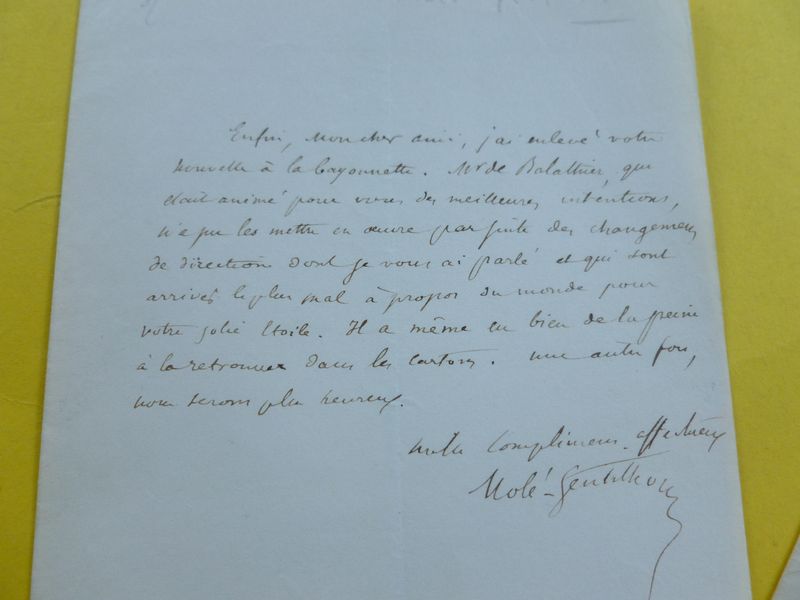 Enfin, mon cher ami, j'ai enlevé votre
nouvelle à la bayonnette. Mr de Balathier, qui
était animé pour vous des meilleures intentions,
n'a pu les mettre en œuvre par suite des changemens
de direction dont je vous ai parlé et qui sont
arrivés le plus mal à propos du monde pour
votre jolie Etoile. Il a même eu bien de la peine
à la retrouver dans les cartons. Une autre fois,
nous serons plus heureux.
mille complimens affectueux
Molé-Gentilhomme